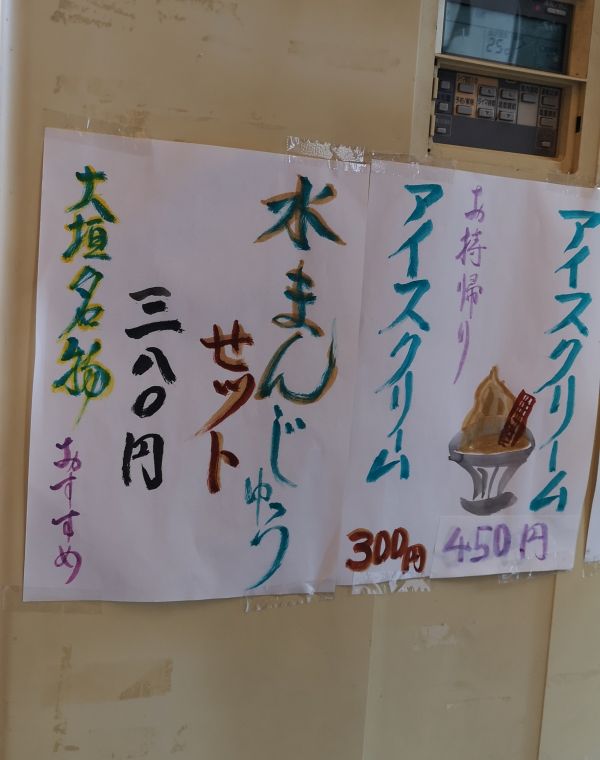 アイスクリーム
450円
お持帰り
アイスクリーム
300円
水まんじゅう
セット
三八〇円
大垣名物
おすすめ
25